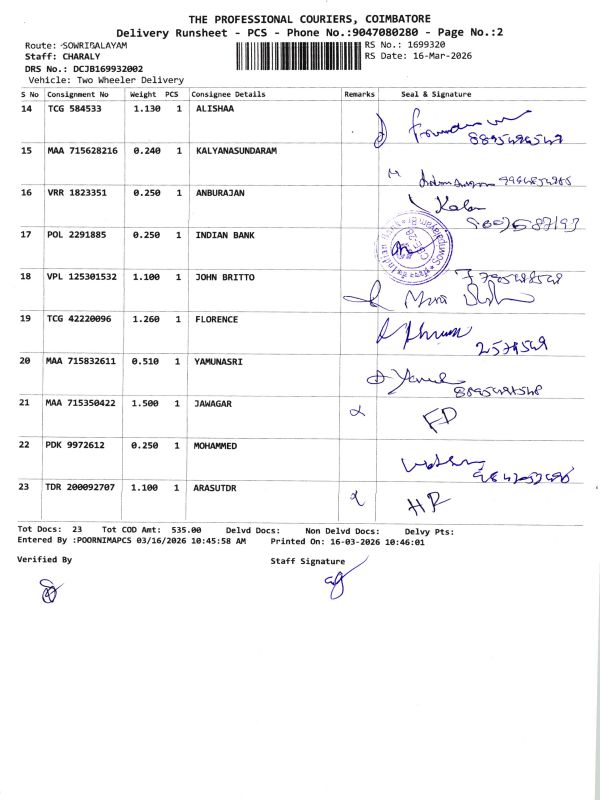 THE PROFESSIONAL COURIERS, COIMBATORE
Delivery Runsheet - PCS - Phone No.:9047080280 - Page No.:2
Route: SOWRIPALAYAM RS No.: 1699320
Staff: CHARALY RS Date: 16-Mar-2026
DRS No.: DCJB169932002
Vehicle: Two Wheeler Delivery
S No Consignment No Weight PCS Consignee Details Remarks Seal & Signature
14 TCG 584533 1.130 1 ALISHAA
15 MAA 715628216 0.240 1 KALYANASUNDARAM
16 VRR 1823351 0.250 1 ANBURAJAN
Kala
17 POL 2291885 0.250 1 INDIAN BANK
18 VPL 125301532 1.100 1 JOHN BRITTO
19 TCG 42220096 1.260 1 FLORENCE
20 MAA 715832611 0.510 1 YAMUNASRI
21 MAA 715350422 1.500 1 JAWAGAR
FD
22 PDK 9972612 0.250 1 MOHAMMED
23 TDR 200092707 1.100 1 ARASUTDR
HR
Tot Docs: 23 Tot COD Amt: 535.00 Delvd Docs: Non Delvd Docs: Delvy Pts:
Entered By :POORNIMAPCS 03/16/2026 10:45:58 AM Printed On: 16-03-2026 10:46:01
Verified By Staff Signature